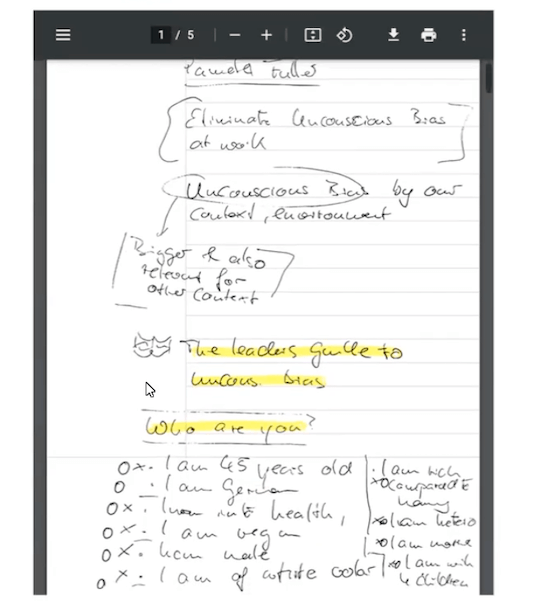 1 / 5
Pamela Fuller
Eliminate Unconscious Bias
at work
Unconscious Bias by our
context, environment
Bigger & also
relevant for
other context
The leaders guide to
uncous. bias
Who are you?
0x. I am 45 years old
0 . I am German
0x. into health,
0x. I am vegan
0x. I am male
0x. I am of white color
. I am rich
x0 compared to
many
x0 I am hetero
x0 I am
x0 I am with
4 children